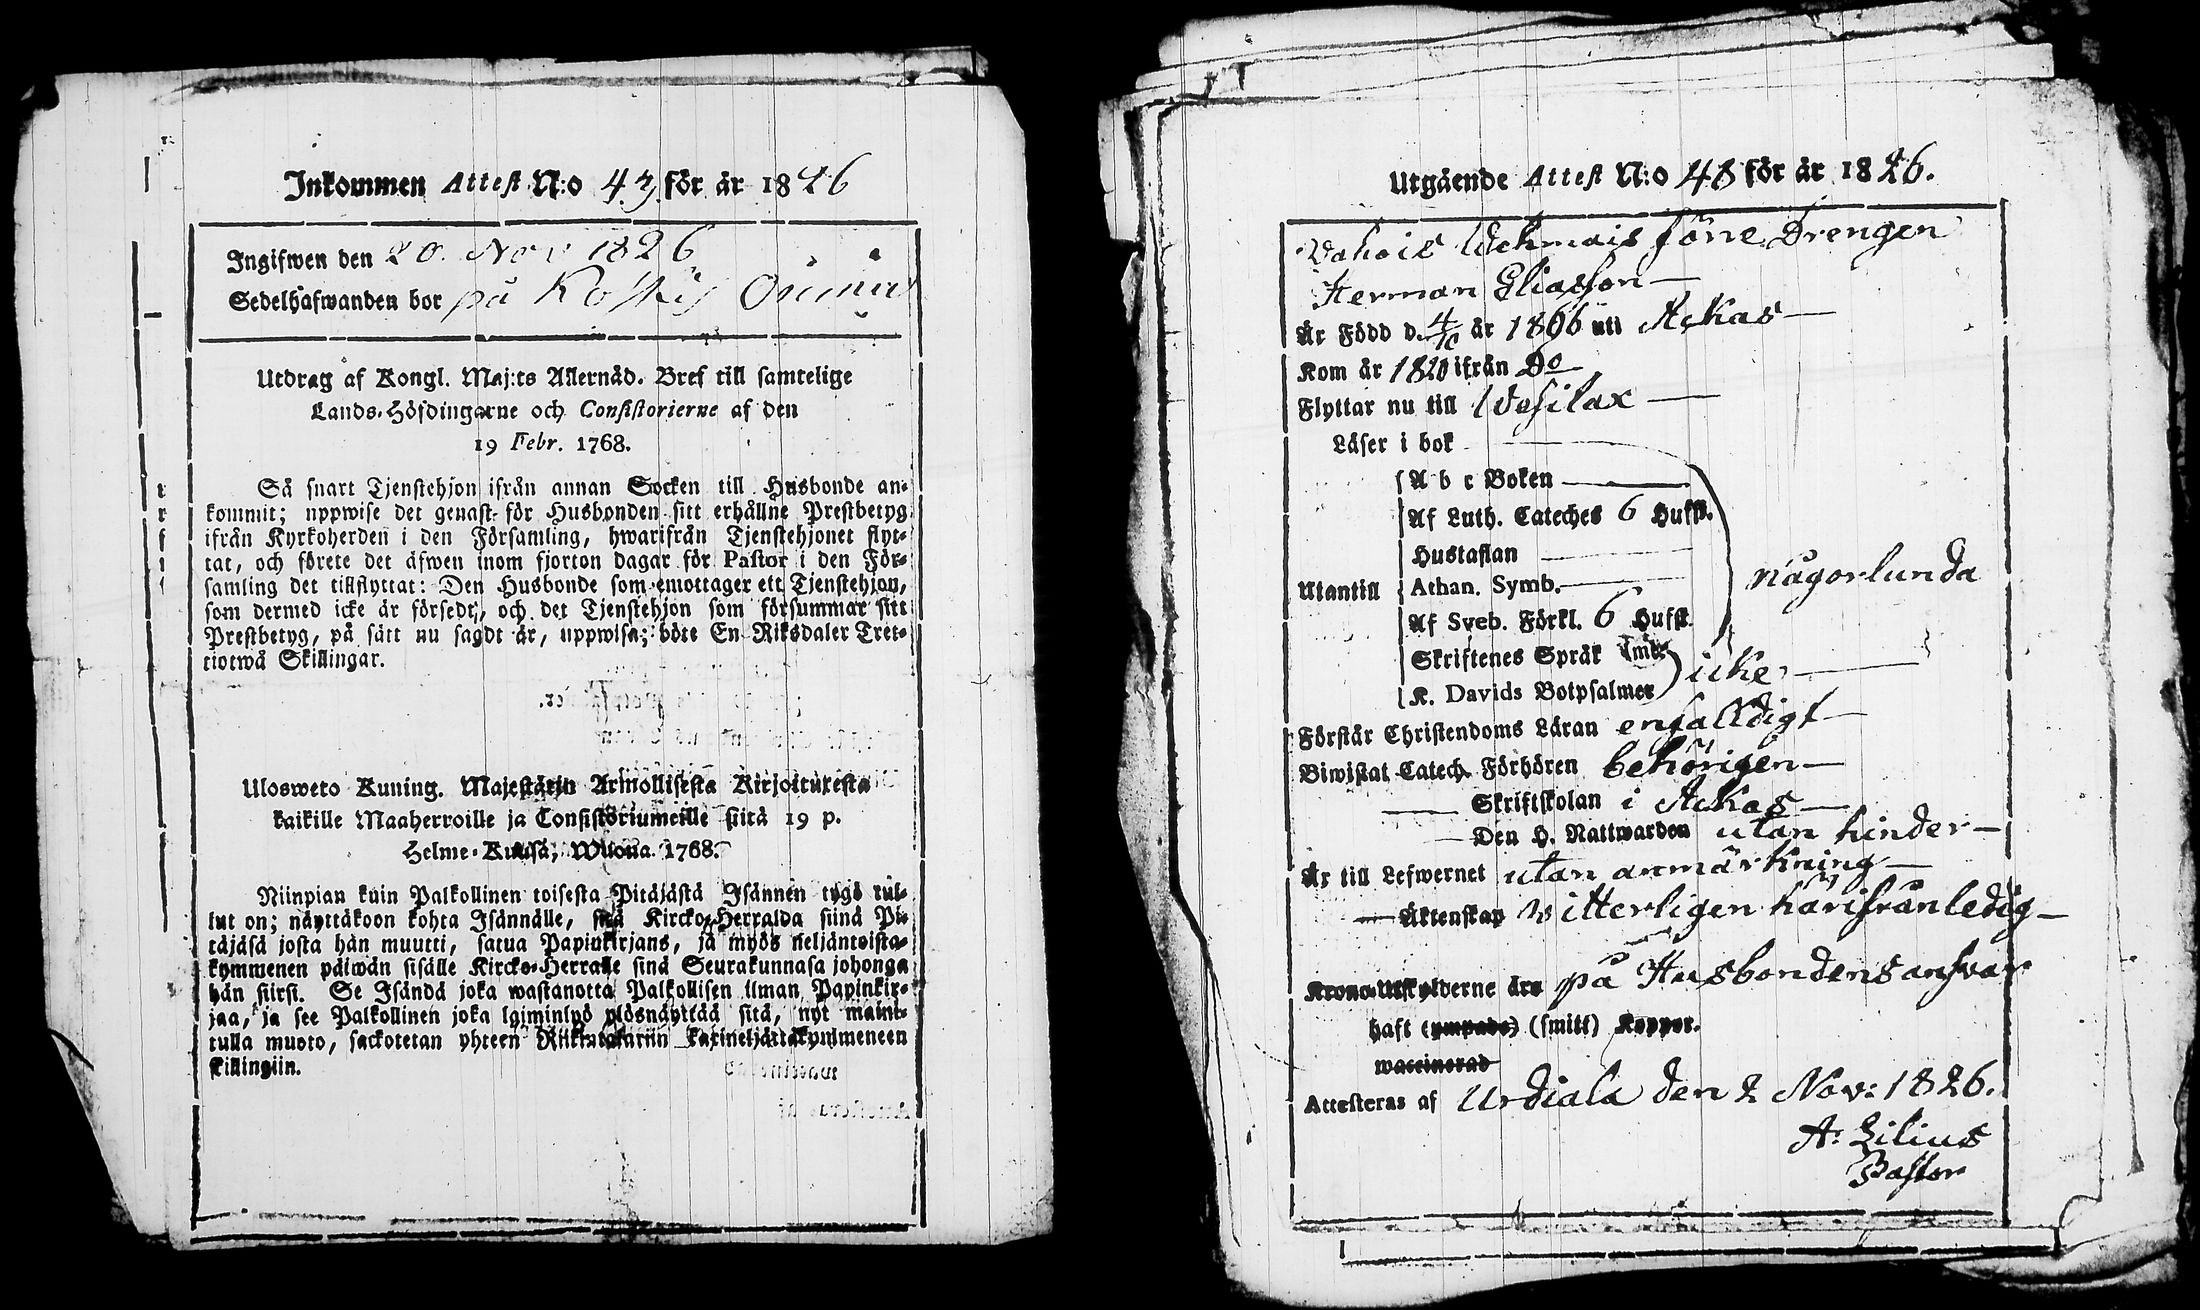 Inkommen Attest N:o 43 för år 1826
Ingifwen den 20. Nov 1826
Sedelhafwanden bor på Koskis
Utdrag af Kongl. Maj:ts Allernåd. Bref till samtelige
Lands-Höfdingarne och Consistorierne af den
19 Febr. 1768.
Så snart Tjenstehjon ifrån annan Socken till Husbonde an-
kommit; uppwise det genast för Husbonden sitt erhållne Prestbetyg
ifrån Kyrkoherden i den Församling, hwarifrån Tjenstehjonet flyt-
tat, och förete det äfwen inom fjorton dagar för Pastor i den För-
samling det tillflyttat: Den Husbonde som emottager ett Tjenstehjon,
som dermed icke är försedt, och det Tjenstehjon som försummar sitt
Prestbetyg, på sätt nu sagdt är, uppwisa; böte En Riksdaler Tret-
tiotwå Skillingar.
Ulosweto Kuning. Majestätin Armollisesta Kirjoituxesta
kaikille Maaherroille ja Consistoriumeille siitä 19 p.
Helme-Kuusa, Wuonna 1768.
Niinpian kuin Palkollinen toisesta Pitäjästä Isännen tygö tul-
lut on; näyttäkoon kohta Isännälle, sitä Kircko-Herralda siinä Pi-
täjäsä josta hän muutti, saatua Papinkirjans, ja myös neljäntoista-
kymmenen päiwän sisälle Kircko-Herralle sinä Seurakunnasa johonga
hän siirsi. Se Isändä joka wastanotta Palkollisen ilman Papinkir-
jaa, ja see Palkollinen joka laiminlyö ylösnäyttää sitä, nyt maini-
tulla muoto, sackotetan yhteen Riikintaleriin kaxineljättäkymmeneen
killingiin.
Utgående Attest N:o 48 för år 1826.
Vahois Wehmais förre Drengen
Herman Eliasson
Är Född d. 4/10 år 1806 uti Ackas
Kom år 1820 ifrån Do
Flyttar nu till Wesilax
Läser i bok
A b c Boken
Af Luth. Cateches 6 Hufst.
Hustaflan
Utantill Athan. Symb. någorlunda
Af Sveb. Förkl. 6 Hufst.
Skriftenes Språk
K. Davids Botpsalmer icke
Förstår Christendoms Läran enfalldigt
Biwistat Catech. Förhören behörigen
Skriftskolan i Ackas
Den H. Nattwarden utan hinder
Är till Lefwernet utan anmärkning
Äktenskap witterligen härifrån ledig
Krono-Utskylderne äro på Husbondens answar
haft (ympade) (smitt) Koppor.
waccinerad
Attesteras af Urdiala den 2 Nov: 1826.
A: Lilius
Pastor